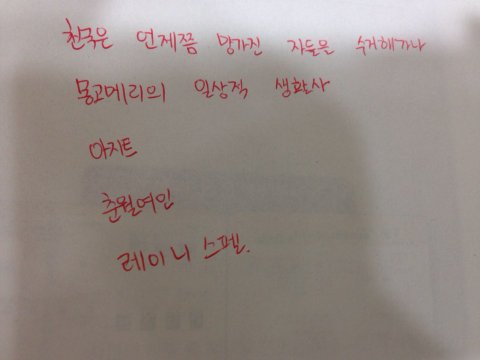 천국은 언제쯤 망가진 자들을 수거해가나
몽고메리의 일상적 생활사
아지트
춘월여인
레이니 스펠.